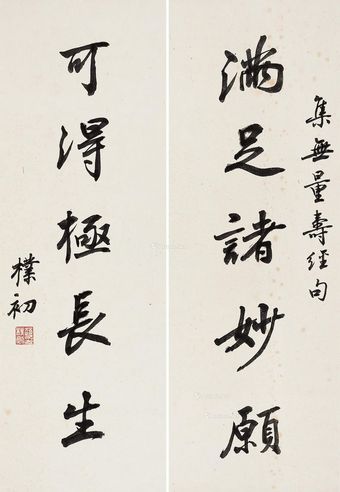 集無量壽經句
滿足諸妙願
可得極長生
樸初